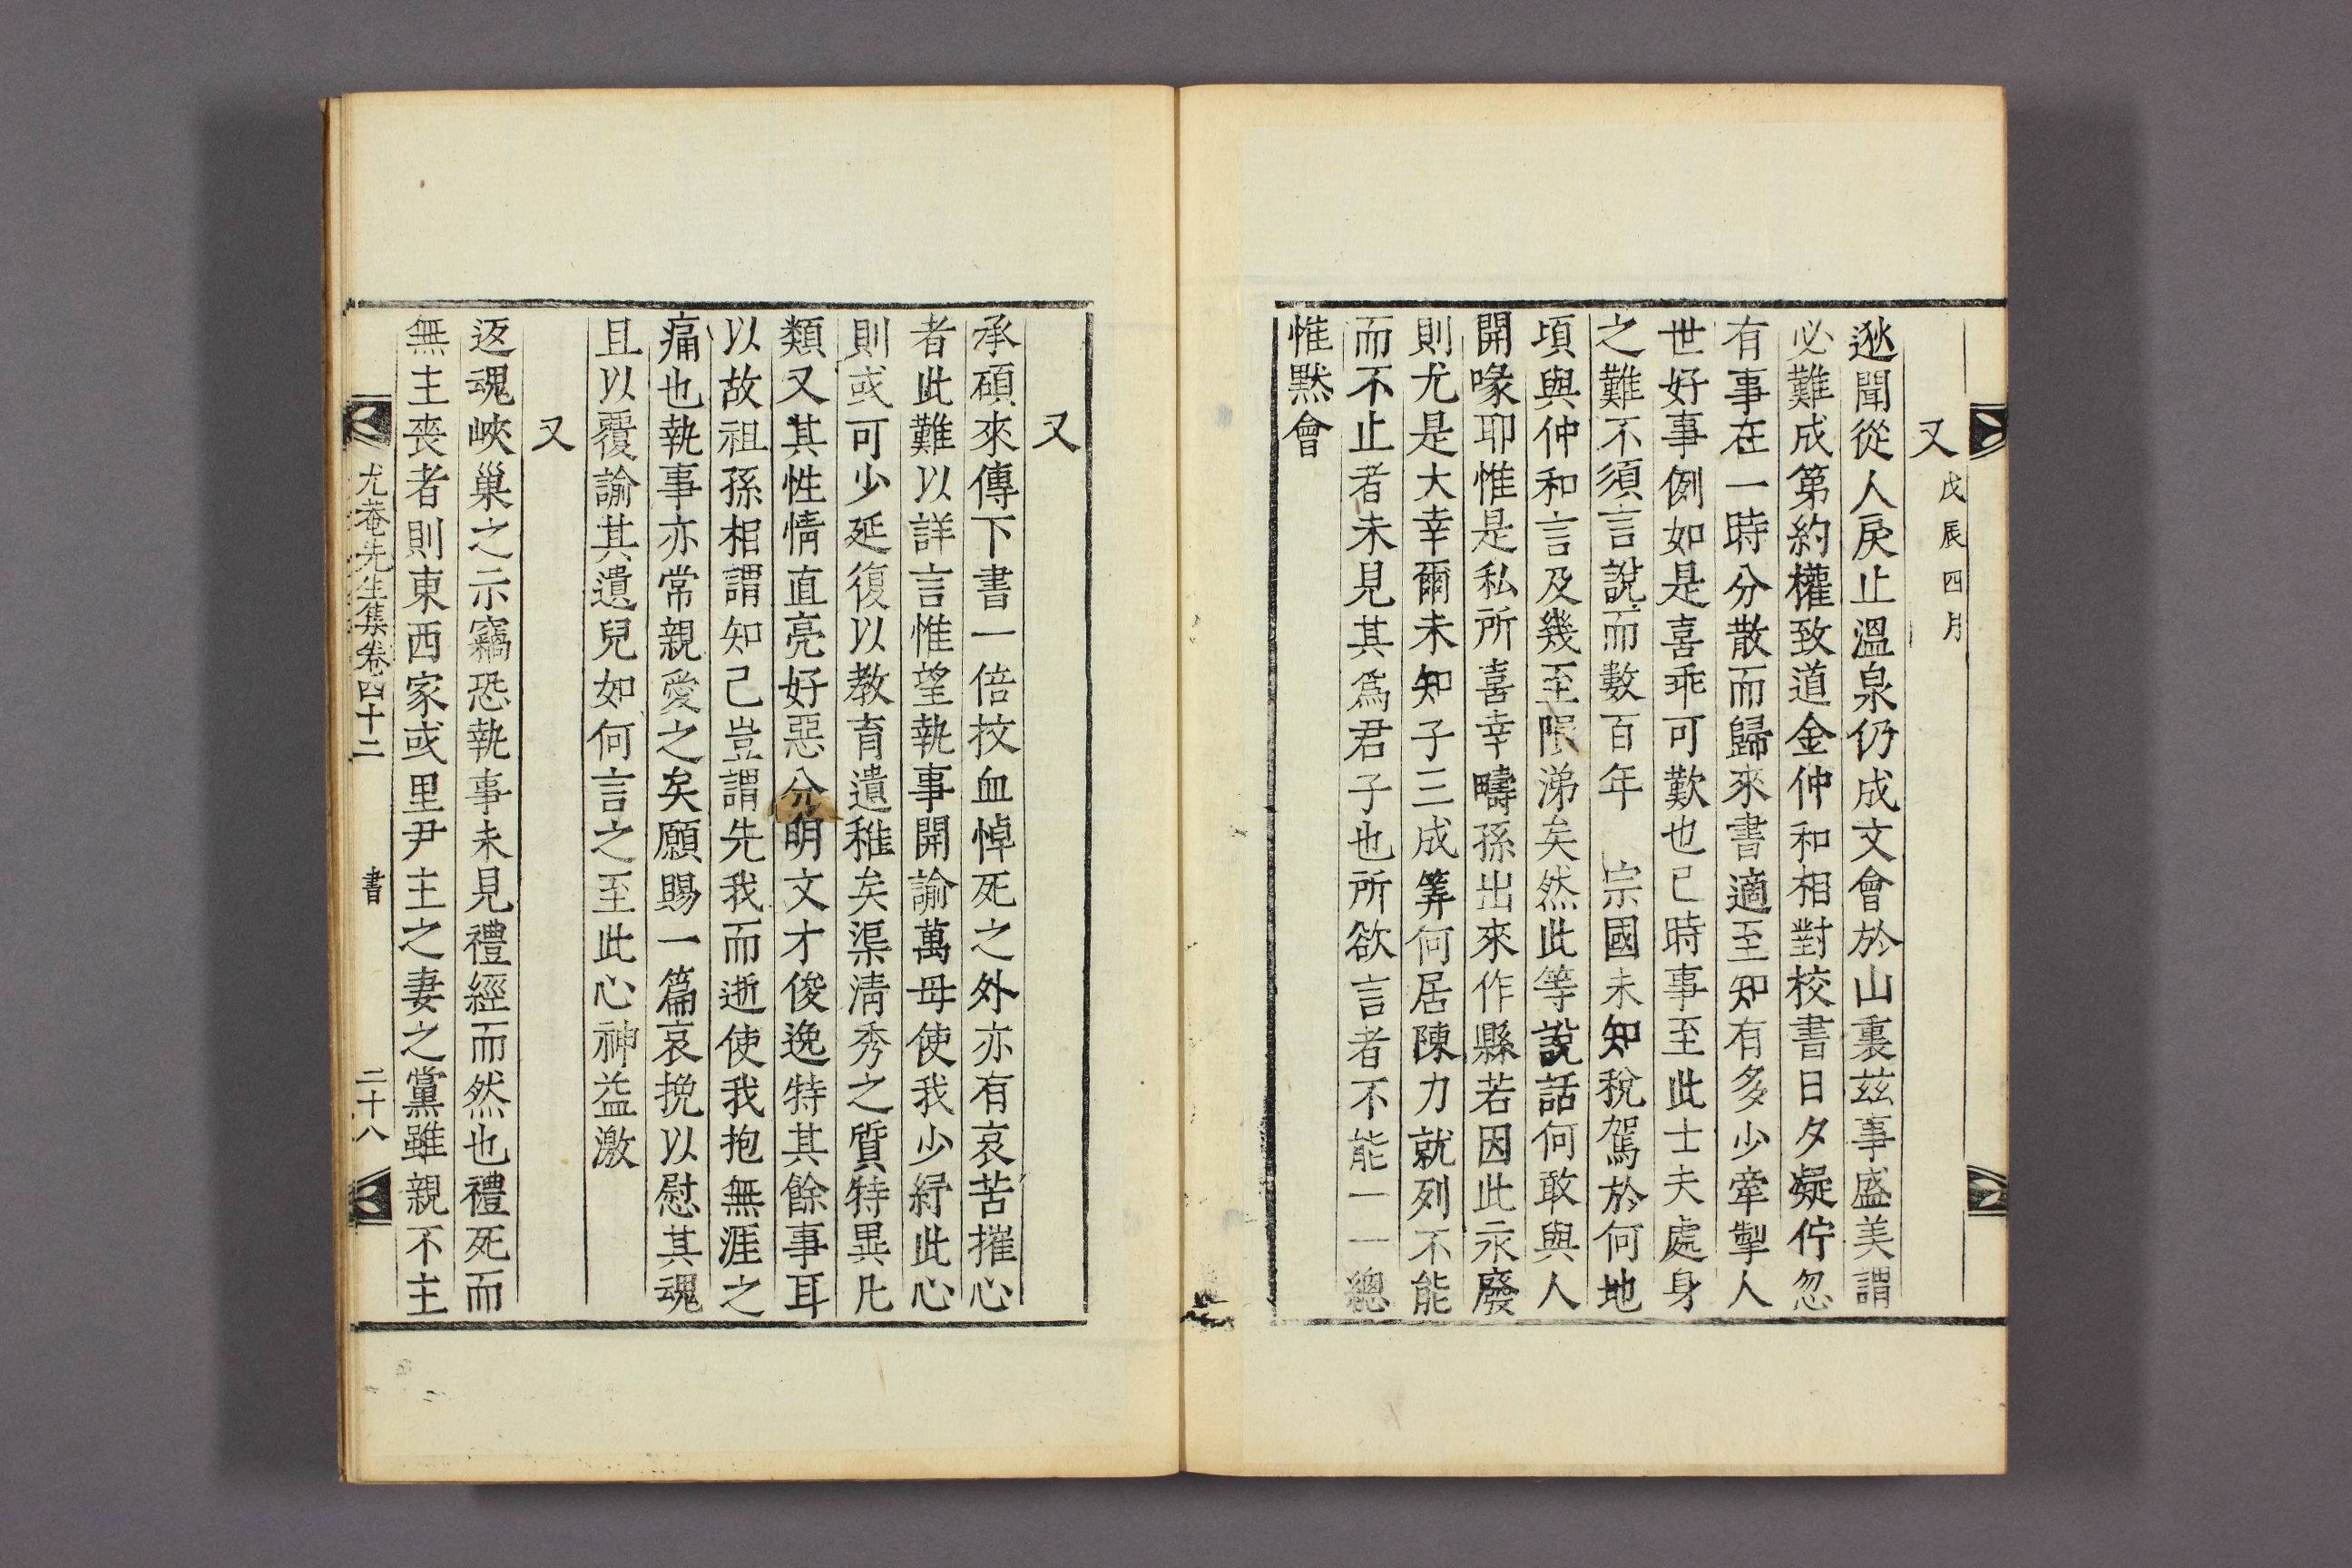 又 戊辰四月
逖聞從人戾止溫泉仍成文會於山裏茲事盛美謂
必難成第約權致道金仲和相對校書日夕凝佇忽
有事在一時分散而歸來書適至知有多少牽掣人
世好事例如是喜乖可歎也己時事至此士夫處身
之難不須言說而數百年 宗國未知稅駕於何地
頃與仲和言及幾至隕涕矣然此等說話何敢與人
開喙耶惟是私所喜幸疇孫出來作縣若因此永廢
則尤是大幸爾未知子三成筭何居陳力就列不能
而不止者未見其爲君子也所欲言者不能一一總
惟默會
又
承碩來傳下書一倍抆血悼死之外亦有哀苦摧心
者此難以詳言惟望執事開諭萬毋使我少紓此心
則或可少延復以教育遺稚矣渠淸秀之質特異凡
類又其性情直亮好惡分明文才俊逸特其餘事耳
以故祖孫相謂知己豈謂先我而逝使我抱無涯之
痛也執事亦常親愛之矣願賜一篇哀挽以慰其魂
且以覆諭其遺兒如何言之至此心神益激
又
返魂峽巢之示竊恐執事未見禮經而然也禮死而
無主喪者則東西家或里尹主之妻之黨雖親不主
尤菴先生集卷四十二 書 二十八